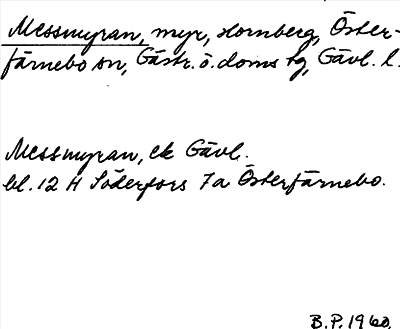 Messmyran, myr, Hornberg, Öster-
färnebo sn, Gästr. ö. doms tg, Gävl. l.
Messmyran, ek Gävl.
bl. 12 H Söderfors 7a Österfärnebo.
B.P. 1960.